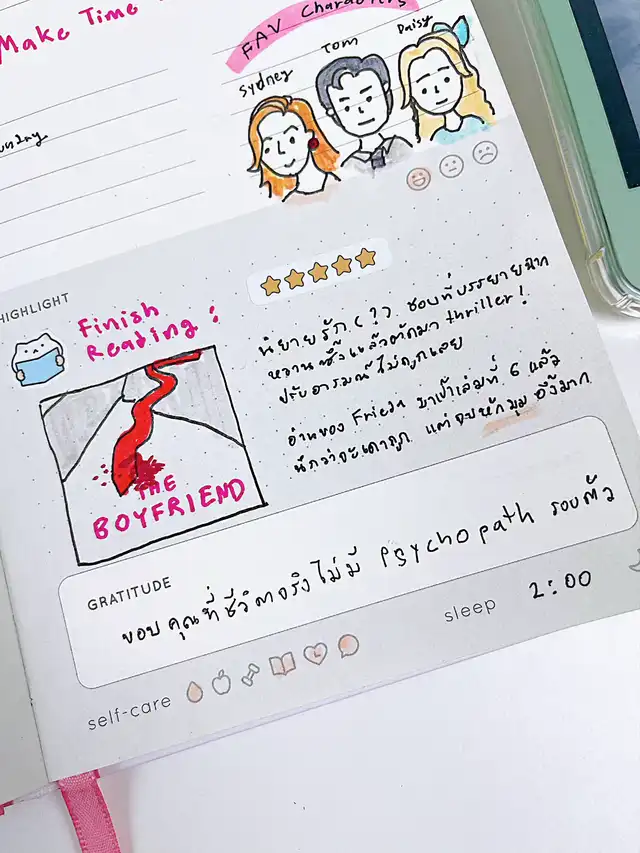 Make Time
FAV Characters
Sydney
Tom
Daisy
HIGHLIGHT
Finish
Reading :
THE
BOYFRIEND
นิยายรัก (?) ชอบที่บรรยายฉาก
หวานซึ้งแล้วตัดมา thriller!
ปรับอารมณ์ไม่ถูกเลย
อ่านของ Frieda มาเป็นเล่มที่ 6 แล้ว
นึกว่าจะเดาถูก แต่จบหักมุม อึ้งมาก
GRATITUDE
ขอบคุณที่ชีวิตจริงไม่มี psychopath รอบตัว
sleep 2:00
self-care